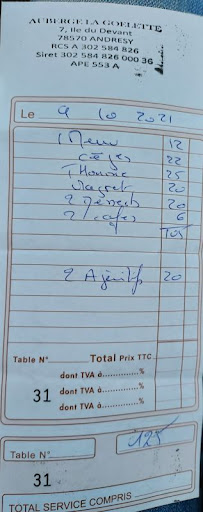 AUBERGE LA GOELETTE
7, Ile du Devant
78570 ANDRESY
RCS A 302 584 826
Siret 302 584 826 000 36
APE 553 A
Le 9 10 2021
1 Menu 12
22
25
20
2 Desserts 20
2 cafes 6
105
2 Apéritifs 20
Table N° Total Prix TTC
dont TVA à..............%
31 dont TVA à..............%
dont TVA à..............%
Table N° 125
31
TOTAL SERVICE COMPRIS